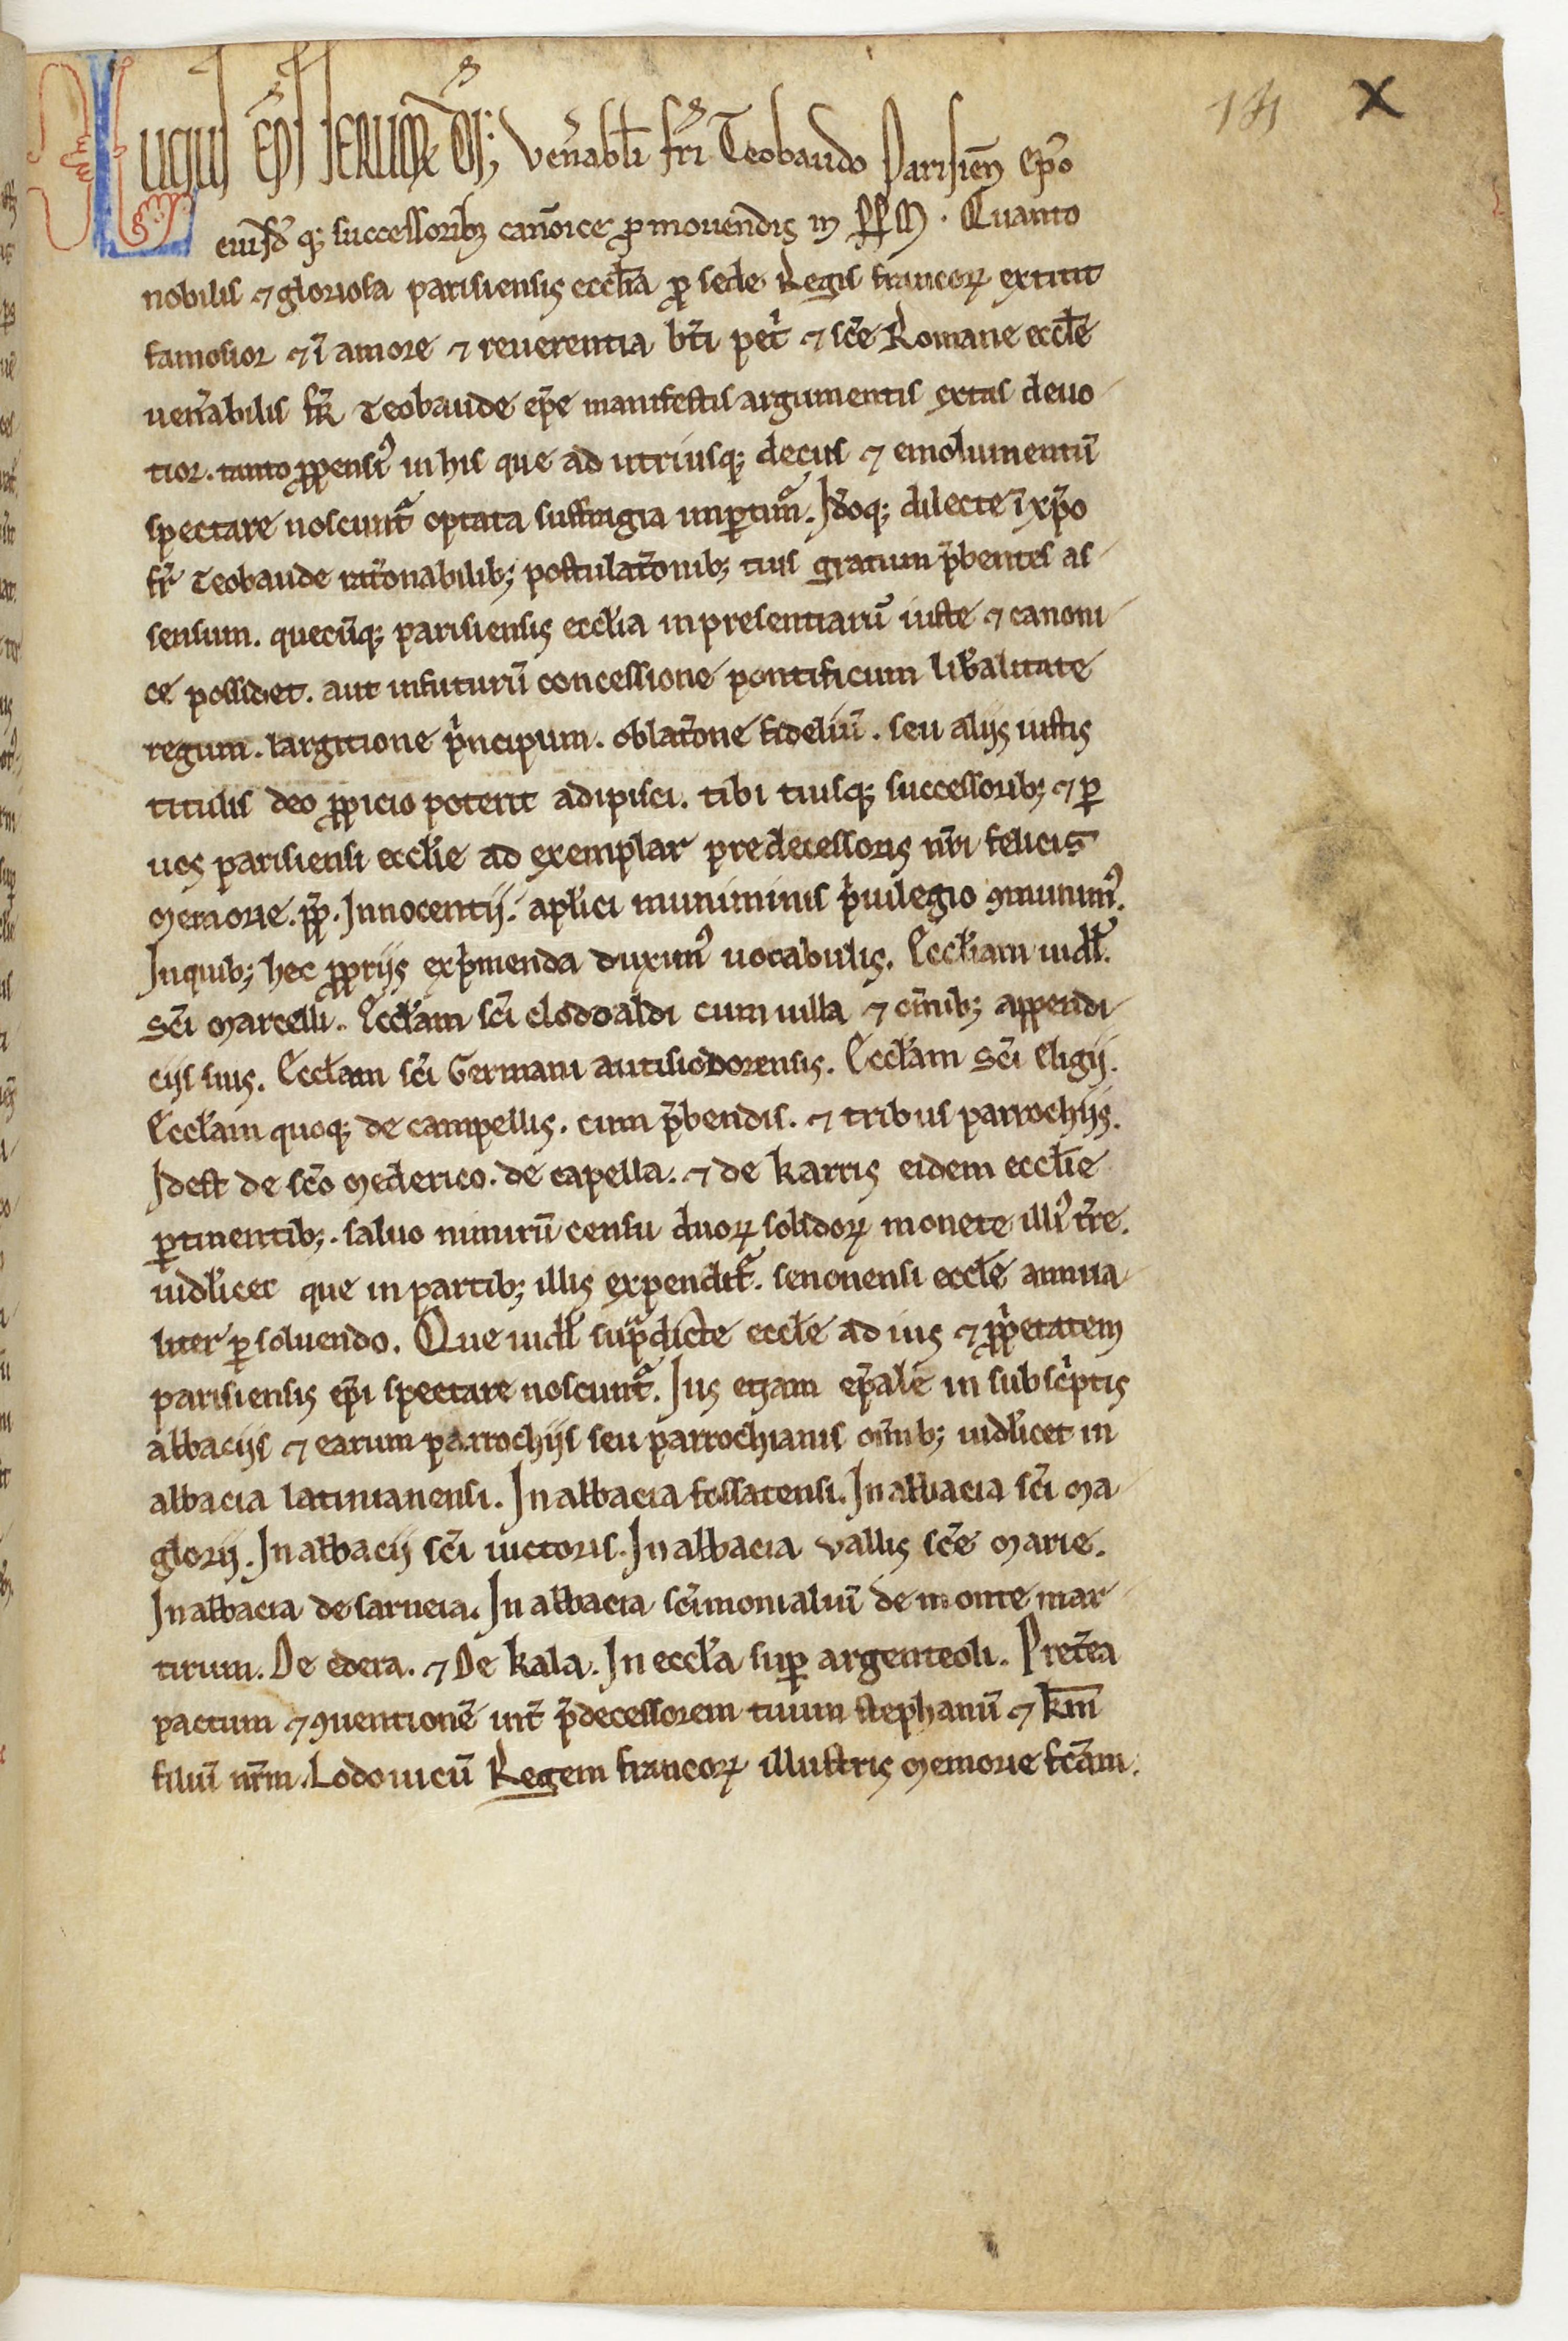 141 X
LUCIUS EP̄S SERUꝰ SERUOꝜ DEI; Ven̄abili fr̄i Teobaudo Parisien̄ ep̄o
eiusdēq; successorib; canōice ꝓmouendis in PPM. Quanto
nobilis ⁊ gloriosa parisiensis eccl̄ia ꝓ sede Regis francoꝝ extitit
famosior ⁊ ī amore ⁊ reuerentia bt̄i pet̄ ⁊ sc̄e Romane eccl̄e
uen̄abilis fr̄ Teobaude ep̄e manifestis argumentis extas deuo-
tior. tanto ꝓpensiꝰ in his que ad utriusq; decus ⁊ emolumentū
spectare noscunt᷑ optata suffragia imꝑtim᷑. Idōq; dilecte ī xp̄o
fr̄ Teobaude rat̄onabilib; postulat̄onib; tuis gratum p̄bentes as-
sensum. quecūq; parisiensis eccl̄ia inpresentiarū iuste ⁊ canoni-
ce possidet. aut infuturū concessione pontificum lib̄alitate
regum. largitione p̄ncipum. oblat̄one fideliū. seu aliis iustis
titulis deo ꝓpicio poterit adipisci. tibi tuisq; successorib; ⁊ ꝑ
uos parisiensi eccl̄ie ad exemplar predecessoris nr̄i felicis
memorie. pp̄. Innocentij. apl̄ici muniminis p̄uilegio ꝯmunimꝰ.
Inquib; hec ꝓpriis exp̄menda duximꝰ uocabulis. Eccl̄iam uidl̄.
sc̄i marcelli. Eccl̄am sc̄i clodoaldi cum uilla ⁊ om̄ib; appendi-
ciis suis. Eccl̄am sc̄i Germani autisiodorensis. Eccl̄am sc̄i eligij.
Eccl̄am quoq; de campellis. cum p̄bendis. ⁊ tribus parrochijs.
Idest de sc̄o mederico. de capella. ⁊ de karris eidem eccl̄ie
ꝑtinentib;. saluo nimirū censu duoꝝ solidoꝝ monete illiꝰ tr̄e.
uidl̄icet que in partib; illis expendit᷑. senonensi eccl̄e annua-
liter ꝑsoluendo. Que uidl̄ sup̄dicte eccl̄e ad ius ⁊ ꝓp̄etatem
parisiensis ep̄i spectare noscunt᷑. Ius etiam ep̄ale in subsc̄ptis
abbaciis ⁊ earum parrochijs seu parrochianis om̄ib; uidl̄icet in
abbacia latinianensi. In abbacia fossatensi. In abbacia sc̄i ma-
glorij. In abbacij sc̄i uictoris. In abbacia vallis sc̄e marie.
In abbacia de sarneia. In abbacia sc̄imonialiū de monte mar-
tirum. De edera. ⁊ De kala. In eccl̄ia suꝑ argenteoli. Pret̄ea
pactum ⁊ ꝯuentionē int̄ p̄decessorem tuum stephanū ⁊ km̄
filiū nr̄m. Lodouicū Regem francoꝝ illustris memorie fc̄am.